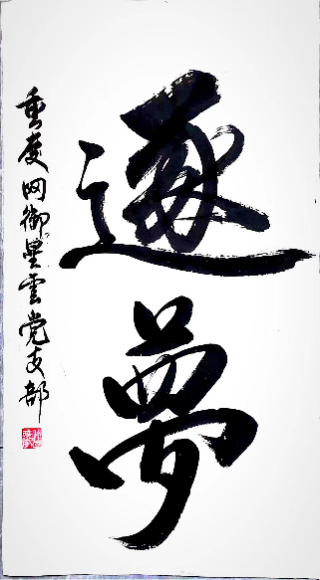 逐夢
重度网御星雲党支部